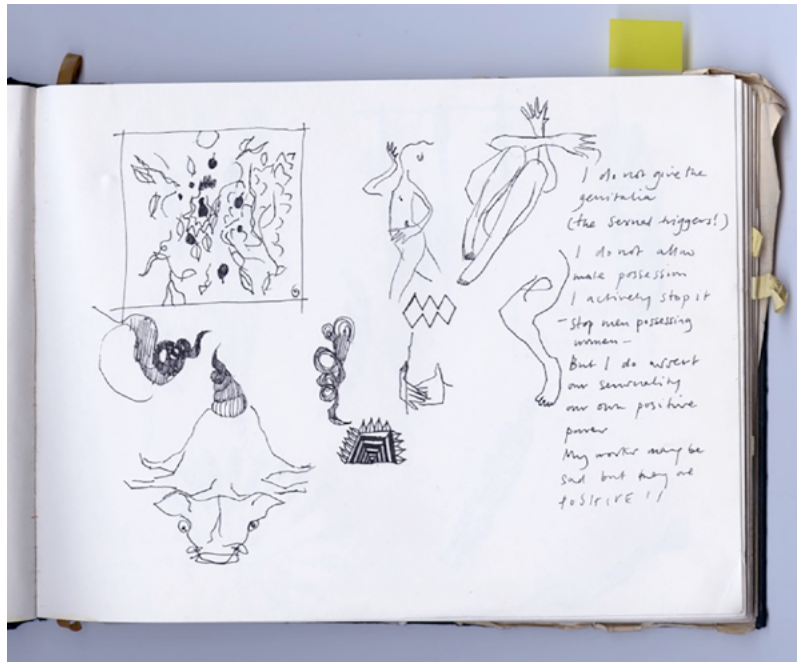 I do not give the
genitalia
(the sexual triggers!)
I do not allow
male possession
I actively stop it
- stop men possessing
women -
But I do assert
our sensuality
our own positive
power
My works may be
sad but they are
POSITIVE !!